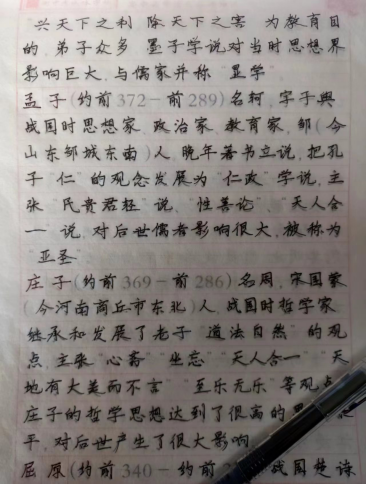 "兴天下之利 除天下之害"为教育目
的.弟子众多 墨子学说对当时思想界
影响巨大,与儒家并称"显学"
孟子(约前372-前289)名轲,字子舆
战国时思想家.政治家.教育家,邹(今
山东邹城东南)人,晚年著书立说,把孔
子"仁"的观念发展为"仁政"学说,主
张"民贵君轻"说."性善论"."天人合
一"说,对后世儒者影响很大,被称为
"亚圣"
庄子(约前369-前286)名周,宋国蒙
(今河南商丘市东北)人,战国时哲学家
继承和发展了老子"道法自然"的观
点,主张"心斋""坐忘""天人合一""天
地有大美而不言""至乐无乐"等观点
庄子的哲学思想达到了很高的
平,对后世产生了很大影响
屈原(约前340-约前 战国楚诗